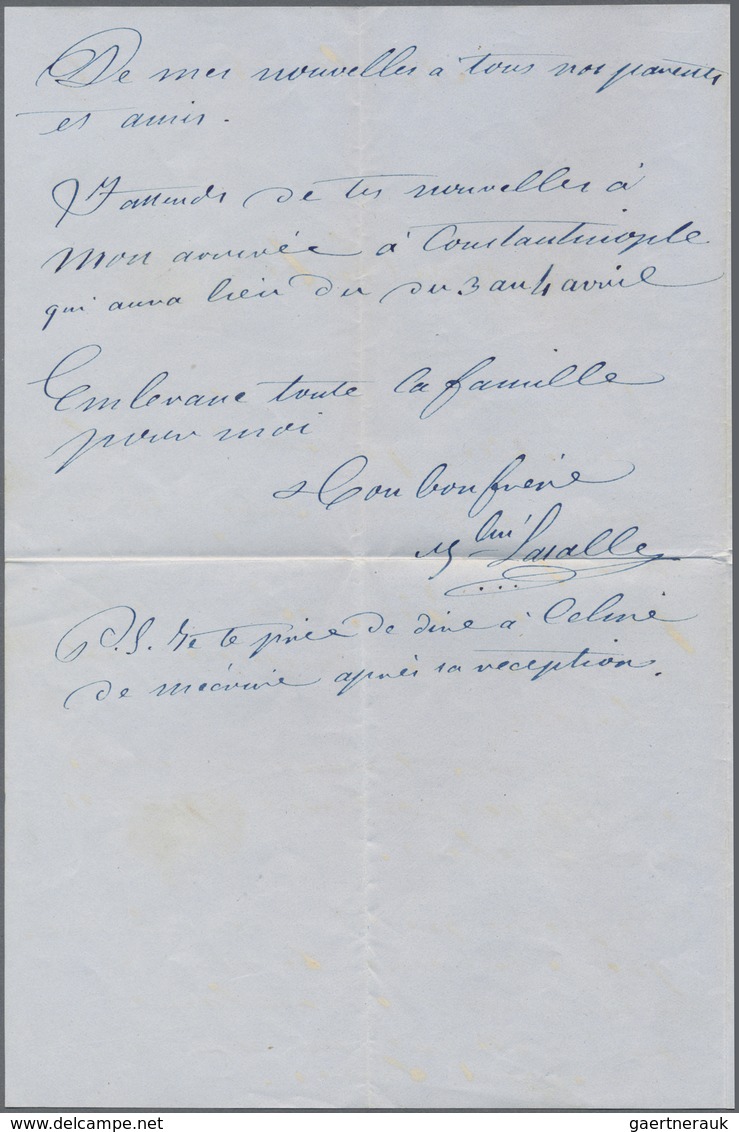 De mes nouvelles à tous nos parents
et amis.
J'attends de tes nouvelles à
mon arrivée à Constantinople
qui aura lieu du du 3 au 4 avril
Embrasse toute la famille
pour moi
Ton bon frère
Lasalle
P.S. Je te prie de dire à Celine
de mécrire après sa réception.
gaertnerauk
delcampe.net